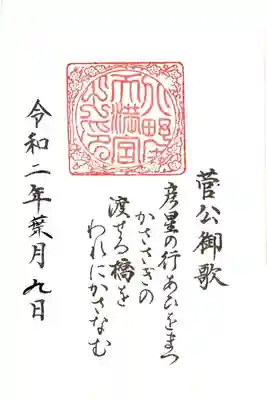 菅公御歌
彦星の行あひをまつ
かささぎの
渡せる橋を
われにかさなむ
天満宮
令和二年葉月九日